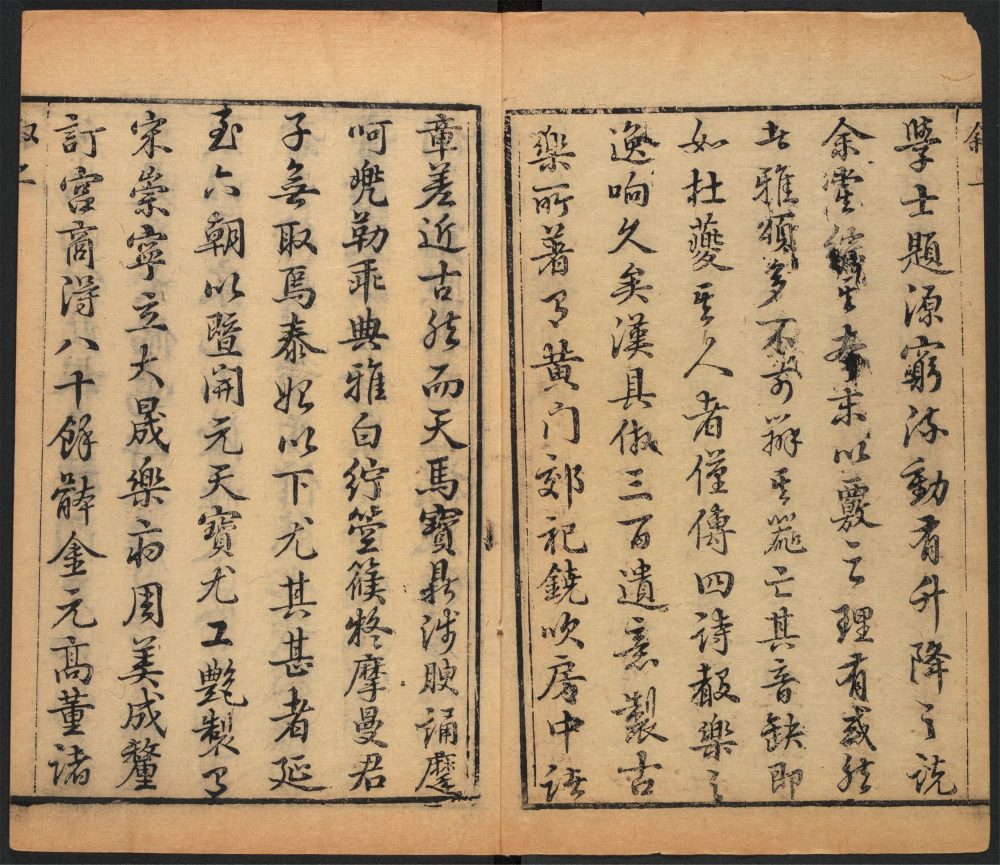 叙一
學士題源窮流動有升降之說
余嘗生本末以覈之理有或然
者雅頌多不可辨其器亡其音缺即
如杜夔其人者僅傳四詩叚樂之
逸响久矣漢具倣三百遺意製古
樂所著有黃门郊祀鐃吹房中語
章差近古然而天馬寶鼎涉腴誦
呵兜勒乖典雅白紵箜篌終摩曼君
子無取焉泰始以下尤其甚者延
至六朝以暨開元天寶尤工艷製有
宋崇寧立大晟樂府周美成釐
訂宮商得八十餘體金元高董諸